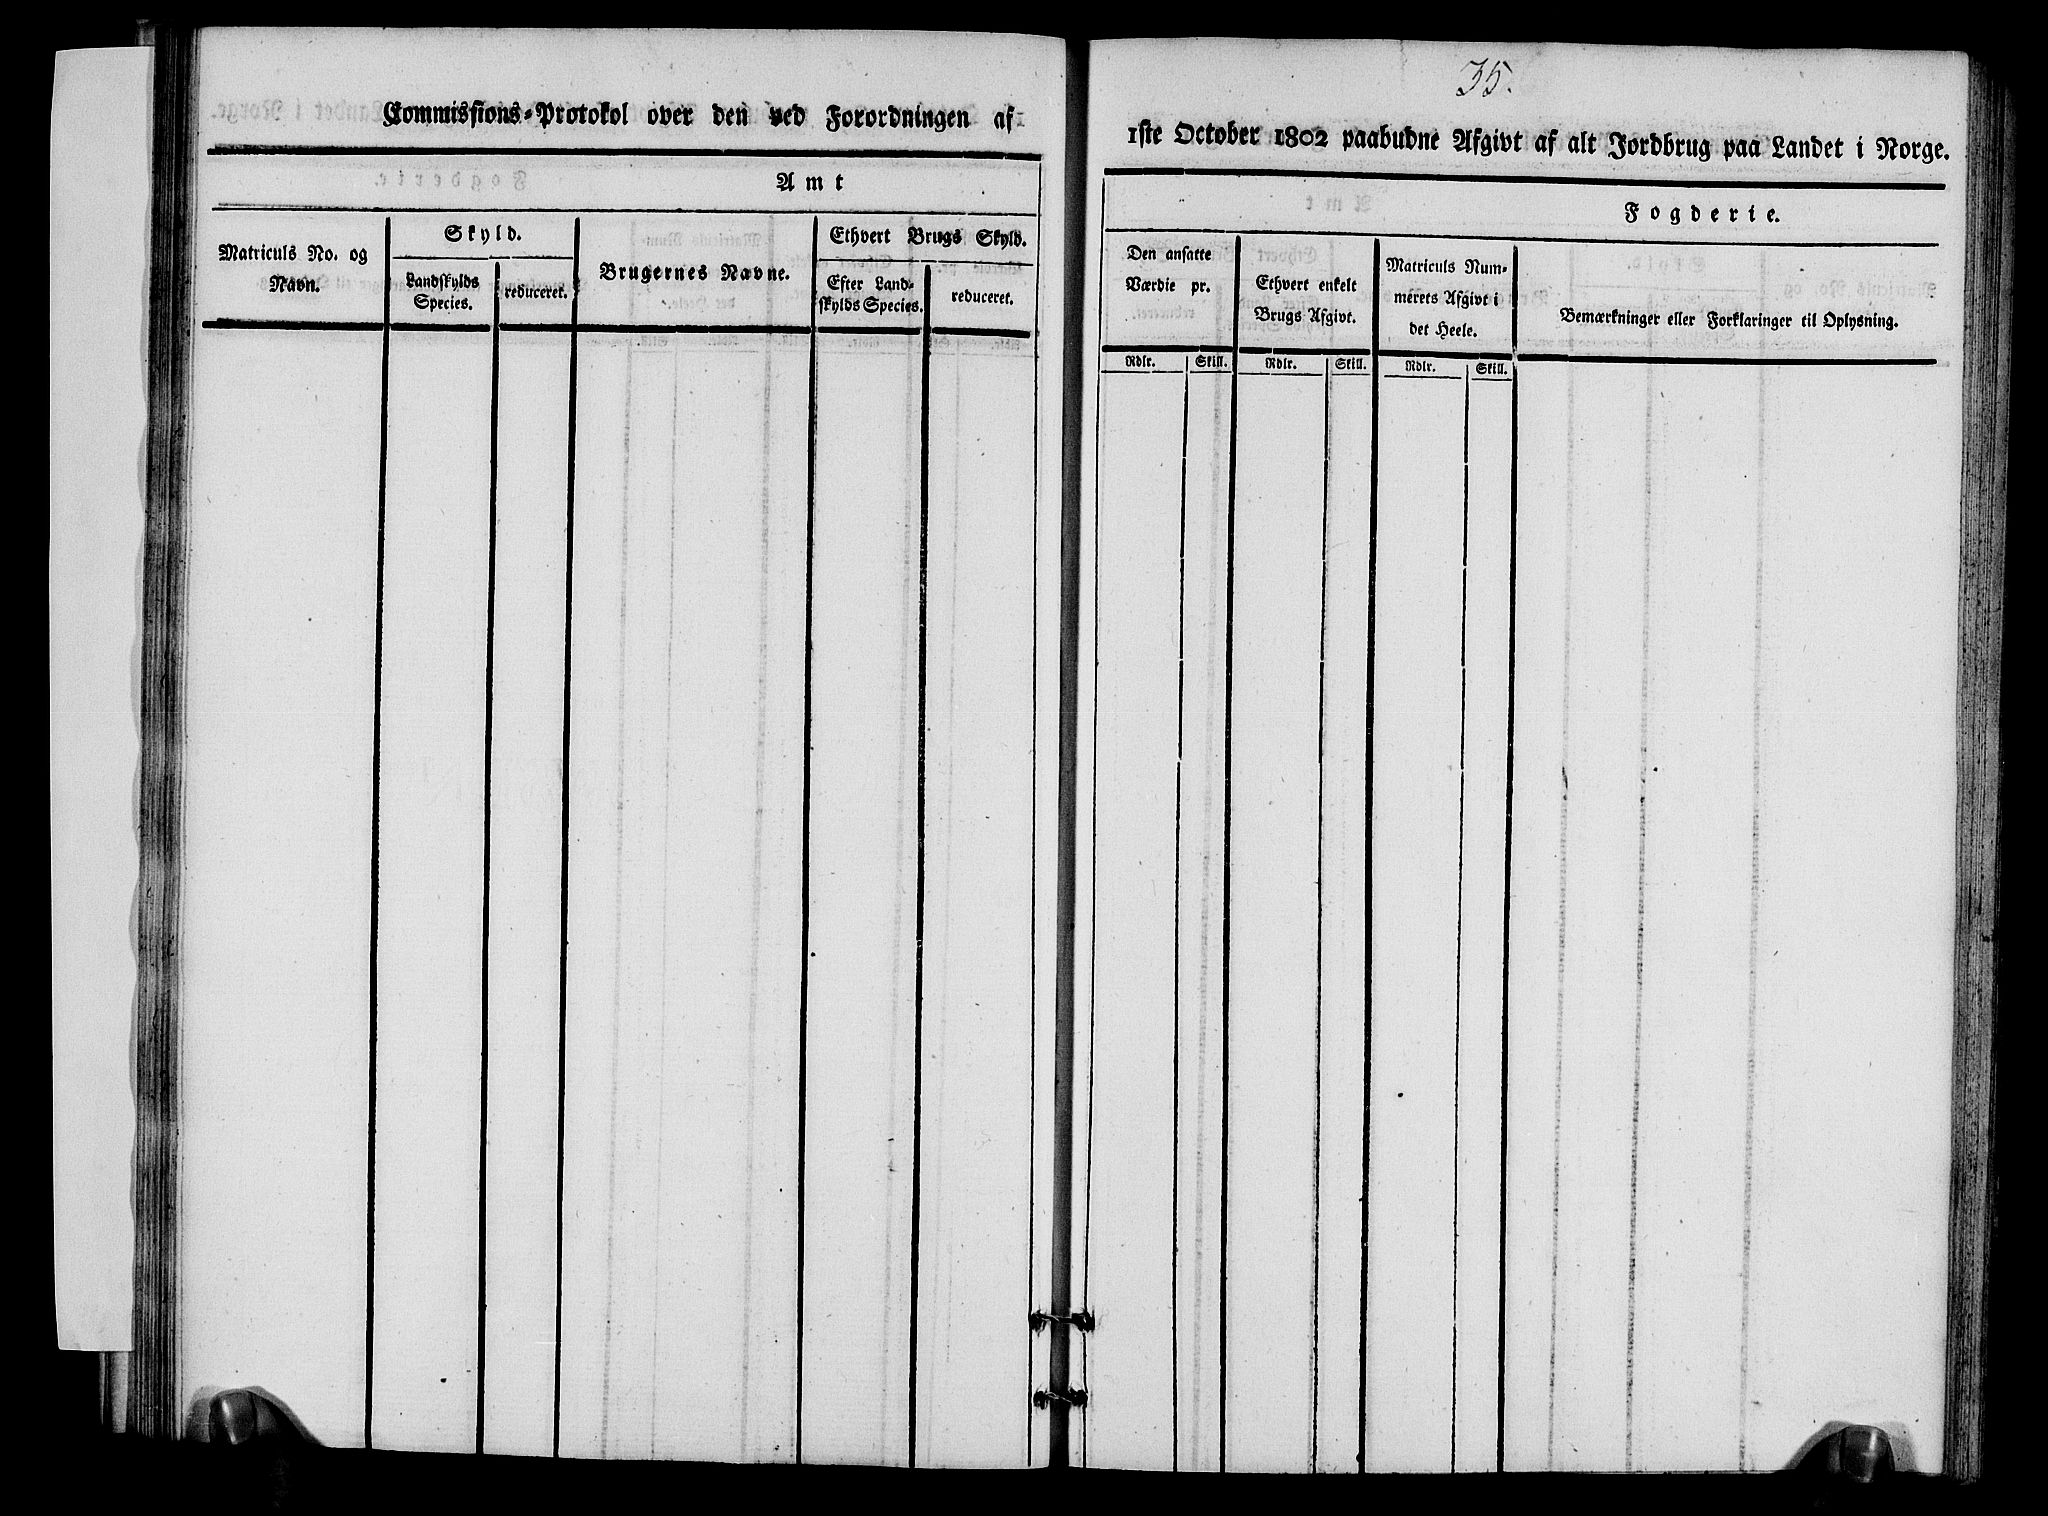 Commissions-Protokol over den ved Forordningen af
Amt
Matriculs No. og
Navn.
Skyld.
Landskylds
Species.
reduceret.
Brugernes Navne.
Ethvert Brugs Skyld.
Efter Land-
skylds Species.
reduceret.
35.
1ste October 1802 paabudne Afgivt af alt Jordbrug paa Landet i Norge.
Fogderie.
Den ansatte
Værdie pr.
Ethvert enkelt
Brugs Afgivt.
Matriculs Num-
merets Afgivt i
det Heele.
Bemærkninger eller Forklaringer til Oplysning.
Rdlr. Skill. Rdlr. Skill. Rdlr. Skill.